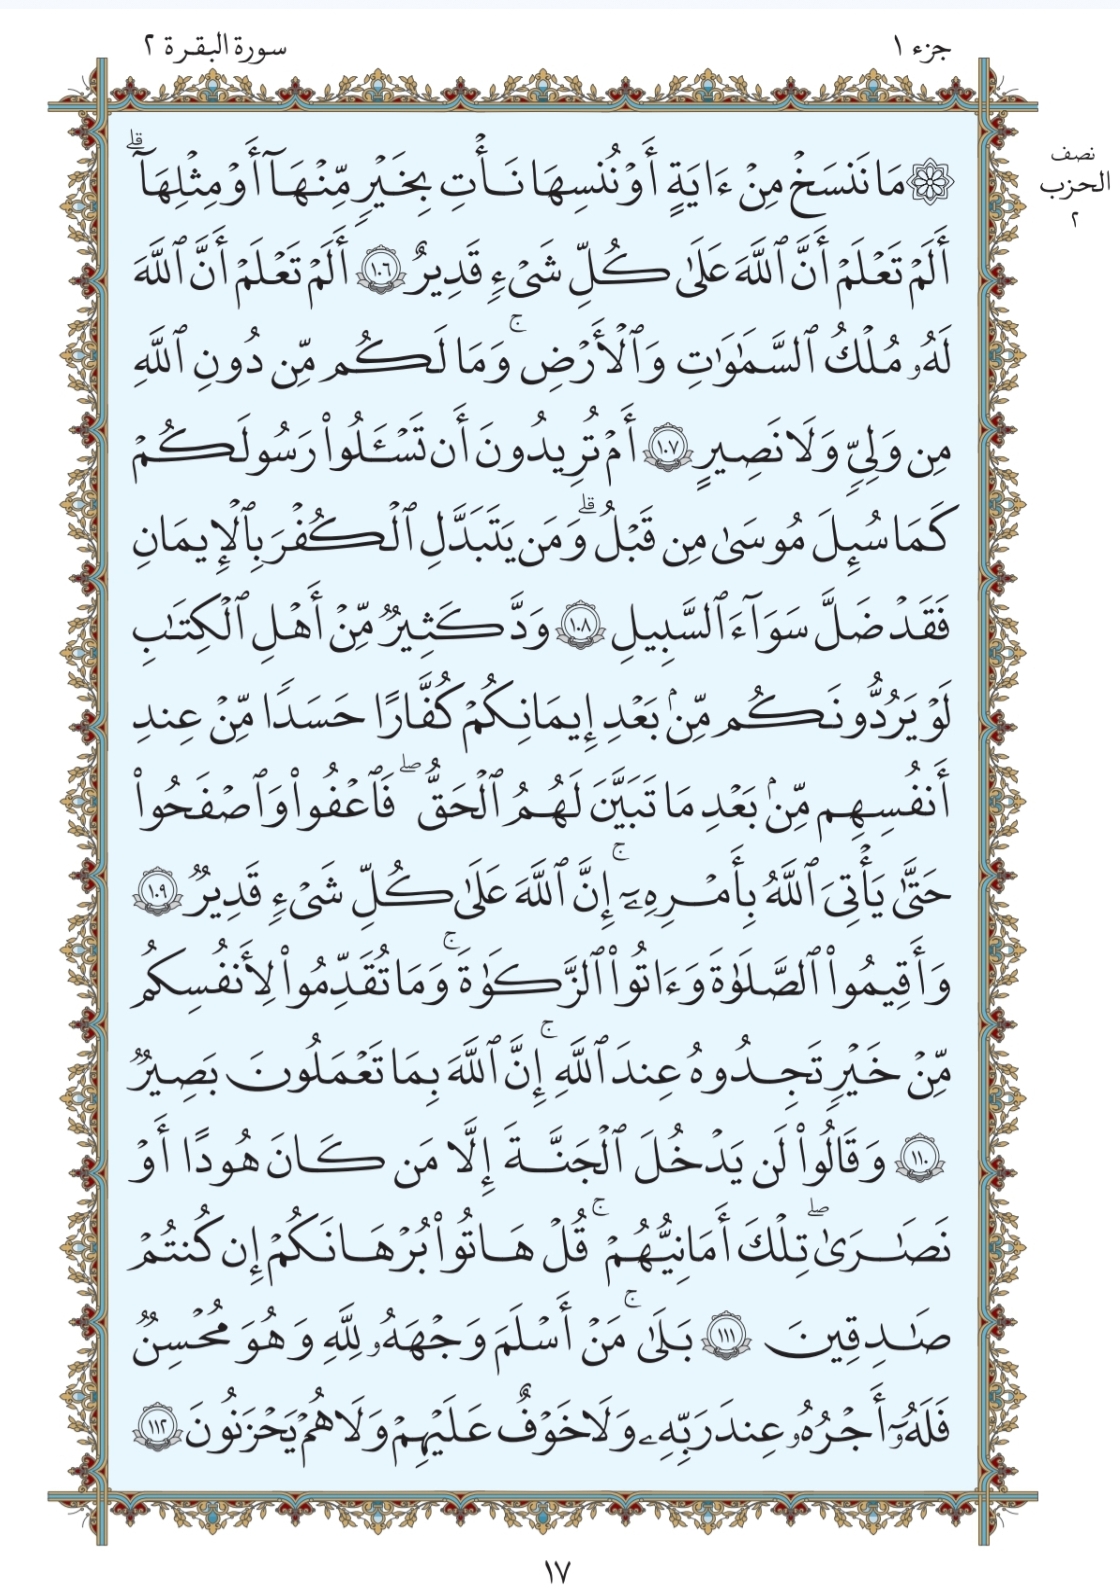 سورة البقرة ٢
جزء ١
نصف
الحزب
٢
۞ مَا نَنسَخْ مِنْ ءَايَةٍ أَوْ نُنسِهَا نَأْتِ بِخَيْرٍ مِّنْهَآ أَوْ مِثْلِهَآ ۗ
أَلَمْ تَعْلَمْ أَنَّ ٱللَّهَ عَلَىٰ كُلِّ شَىْءٍ قَدِيرٌ ١٠٦ أَلَمْ تَعْلَمْ أَنَّ ٱللَّهَ
لَهُۥ مُلْكُ ٱلسَّمَـٰوَٰتِ وَٱلْأَرْضِ ۚ وَمَا لَكُم مِّن دُونِ ٱللَّهِ
مِن وَلِىٍّ وَلَا نَصِيرٍ ١٠٧ أَمْ تُرِيدُونَ أَن تَسْـَٔلُوا۟ رَسُولَكُمْ
كَمَا سُئِلَ مُوسَىٰ مِن قَبْلُ ۗ وَمَن يَتَبَدَّلِ ٱلْكُفْرَ بِٱلْإِيمَانِ
فَقَدْ ضَلَّ سَوَآءَ ٱلسَّبِيلِ ١٠٨ وَدَّ كَثِيرٌ مِّنْ أَهْلِ ٱلْكِتَـٰبِ
لَوْ يَرُدُّونَكُم مِّنۢ بَعْدِ إِيمَانِكُمْ كُفَّارًا حَسَدًا مِّنْ عِندِ
أَنفُسِهِم مِّنۢ بَعْدِ مَا تَبَيَّنَ لَهُمُ ٱلْحَقُّ ۖ فَٱعْفُوا۟ وَٱصْفَحُوا۟
حَتَّىٰ يَأْتِىَ ٱللَّهُ بِأَمْرِهِۦٓ ۚ إِنَّ ٱللَّهَ عَلَىٰ كُلِّ شَىْءٍ قَدِيرٌ ١٠٩
وَأَقِيمُوا۟ ٱلصَّلَوٰةَ وَءَاتُوا۟ ٱلزَّكَوٰةَ ۚ وَمَا تُقَدِّمُوا۟ لِأَنفُسِكُم
مِّنْ خَيْرٍ تَجِدُوهُ عِندَ ٱللَّهِ ۚ إِنَّ ٱللَّهَ بِمَا تَعْمَلُونَ بَصِيرٌ
١١٠ وَقَالُوا۟ لَن يَدْخُلَ ٱلْجَنَّةَ إِلَّا مَن كَانَ هُودًا أَوْ
نَصَـٰرَىٰ ۗ تِلْكَ أَمَانِيُّهُمْ ۚ قُلْ هَاتُوا۟ بُرْهَانَكُمْ إِن كُنتُمْ
صَـٰدِقِينَ ١١١ بَلَىٰ ۚ مَنْ أَسْلَمَ وَجْهَهُۥ لِلَّهِ وَهُوَ مُحْسِنٌ
فَلَهُۥٓ أَجْرُهُۥ عِندَ رَبِّهِۦ وَلَا خَوْفٌ عَلَيْهِمْ وَلَا هُمْ يَحْزَنُونَ ١١٢
١٧